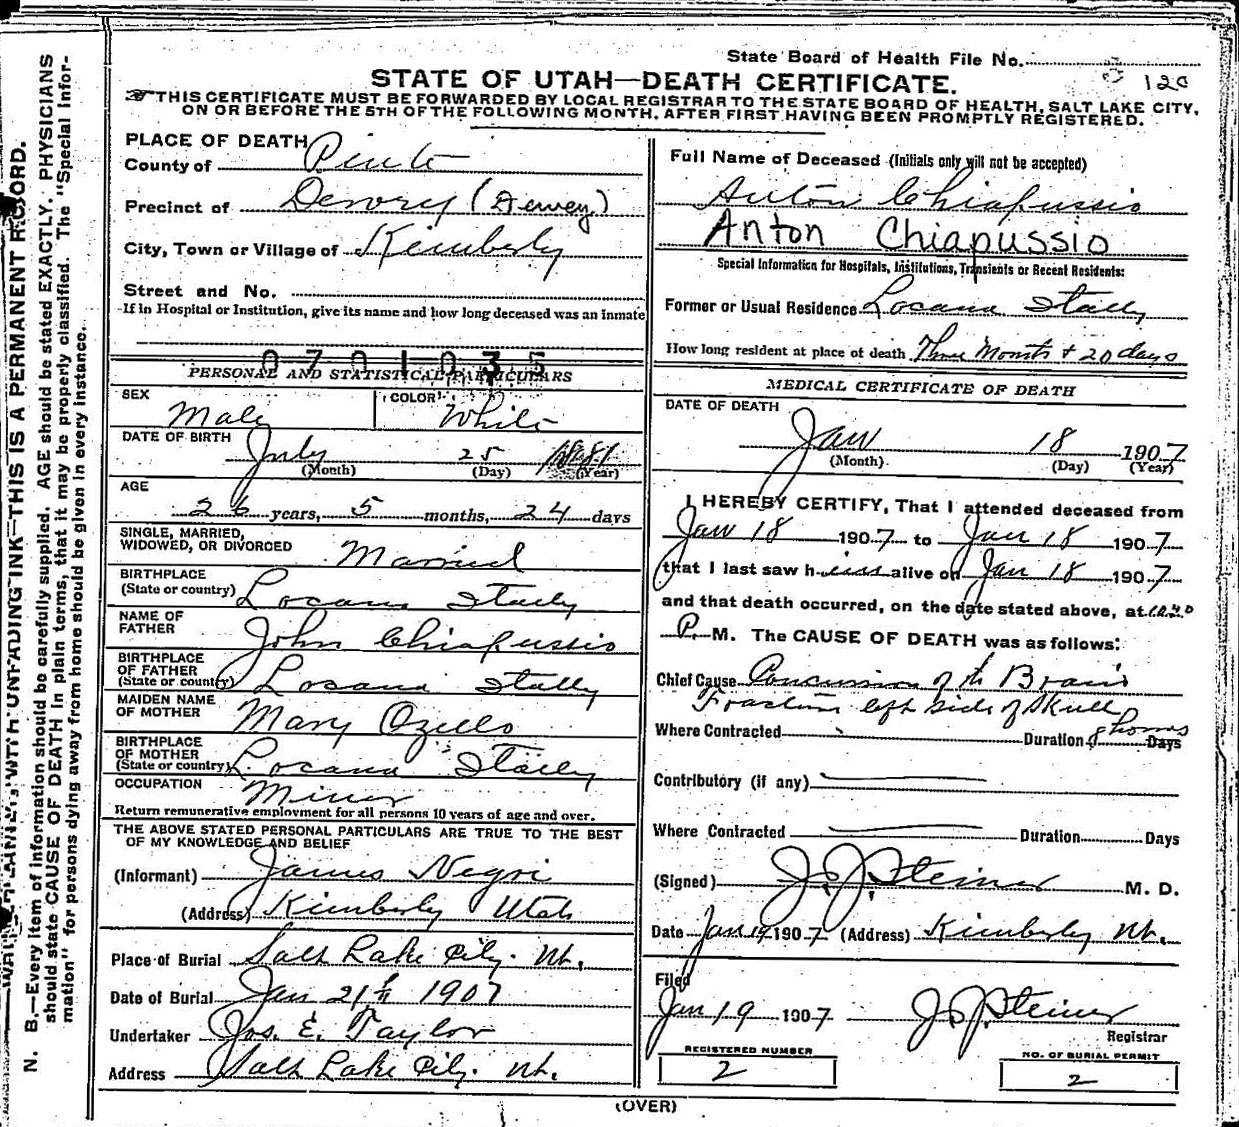 State Board of Health File No. 120
STATE OF UTAH—DEATH CERTIFICATE.
THIS CERTIFICATE MUST BE FORWARDED BY LOCAL REGISTRAR TO THE STATE BOARD OF HEALTH, SALT LAKE CITY,
ON OR BEFORE THE 5TH OF THE FOLLOWING MONTH, AFTER FIRST HAVING BEEN PROMPTLY REGISTERED.
N. B.—Every item of information should be carefully supplied. AGE should be stated EXACTLY. PHYSICIANS
should state CAUSE OF DEATH in plain terms, that it may be properly classified. The "Special Infor-
mation" for persons dying away from home should be given in every instance.
WITH UNFADING INK—THIS IS A PERMANENT RECORD.
PLACE OF DEATH
County of Piute
Precinct of (Dewey)
City, Town or Village of Kimberly
Street and No.
If in Hospital or Institution, give its name and how long deceased was an Inmate
0701035
PERSONAL AND STATISTICAL PARTICULARS
SEX Male COLOR White
DATE OF BIRTH July 25 1881
(Month) (Day) (Year)
AGE
26 years, 5 months, 24 days
SINGLE, MARRIED,
WIDOWED, OR DIVORCED Married
BIRTHPLACE
(State or country) Locana Itally
NAME OF
FATHER John Chiapussio
BIRTHPLACE
OF FATHER
(State or country) Locana Itally
MAIDEN NAME
OF MOTHER Mary
BIRTHPLACE
OF MOTHER
(State or country) Locana Itally
OCCUPATION Miner
Return remunerative employment for all persons 10 years of age and over.
THE ABOVE STATED PERSONAL PARTICULARS ARE TRUE TO THE BEST
OF MY KNOWLEDGE AND BELIEF
(Informant) James Negri
(Address) Kimberly Utah
Place of Burial Salt Lake City. Ut.
Date of Burial Jan 21st 1907
Undertaker Jos. E. Taylor
Address Salt Lake City. Ut.
Full Name of Deceased (Initials only will not be accepted)
Anton Chiapussio
Anton Chiapussio
Special Information for Hospitals, Institutions, Transients or Recent Residents:
Former or Usual Residence Locana Itally
How long resident at place of death Three Months + 20 days
MEDICAL CERTIFICATE OF DEATH
DATE OF DEATH
Jan 18 1907
(Month) (Day) (Year)
I HEREBY CERTIFY, That I attended deceased from
Jan 18 1907 to Jan 18 1907
that I last saw him alive on Jan 18 1907
and that death occurred, on the date stated above, at
P. M. The CAUSE OF DEATH was as follows:
Chief Cause Concussion of the Brain
Fracture left side of Skull
Where Contracted Duration 8 hours Days
Contributory (if any)
Where Contracted Duration Days
(Signed) J. J. Steiner M. D.
Date Jan 19 1907 (Address) Kimberly Ut.
Filed
Jan 19 1907 J. J. Steiner
Registrar
REGISTERED NUMBER
2
NO. OF BURIAL PERMIT
2
(OVER)